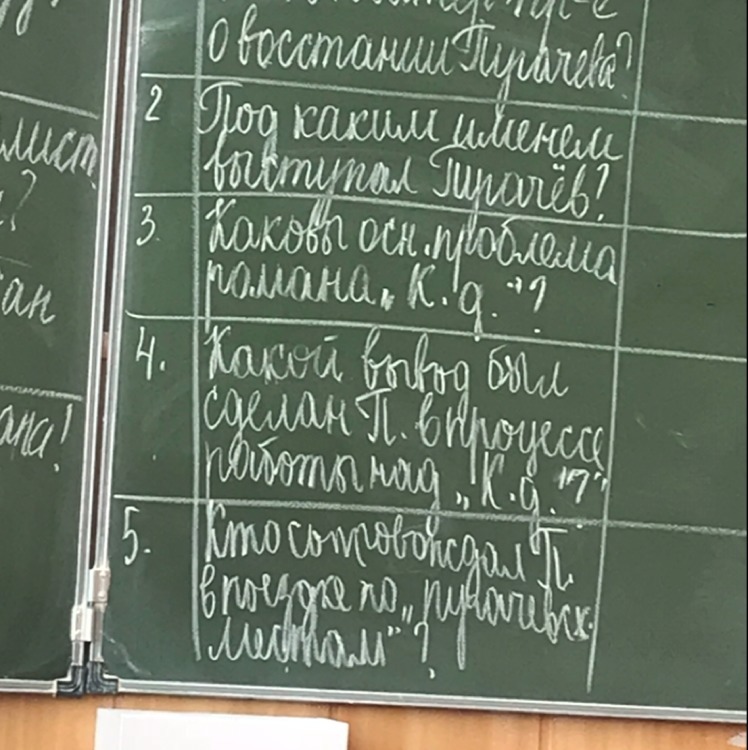 лист
?
о восстании Пугачева?
2 Под каким именем
выступал Пугачёв?
3. Каковы осн. проблема
романа „К. д."?
4. Какой вывод был
сделан П. в процессе
работы над „К.д."?
5. Кто сопровождал П.
в поездке по „пугачевск.
местам"?